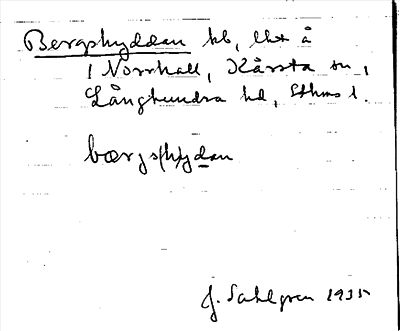 Bergshyddan hb, lht å
1 Norrhall, Kårsta sn,
Långhundra hd, Sthms l.
bærjs(h)ydan
J. Sahlgren 1935